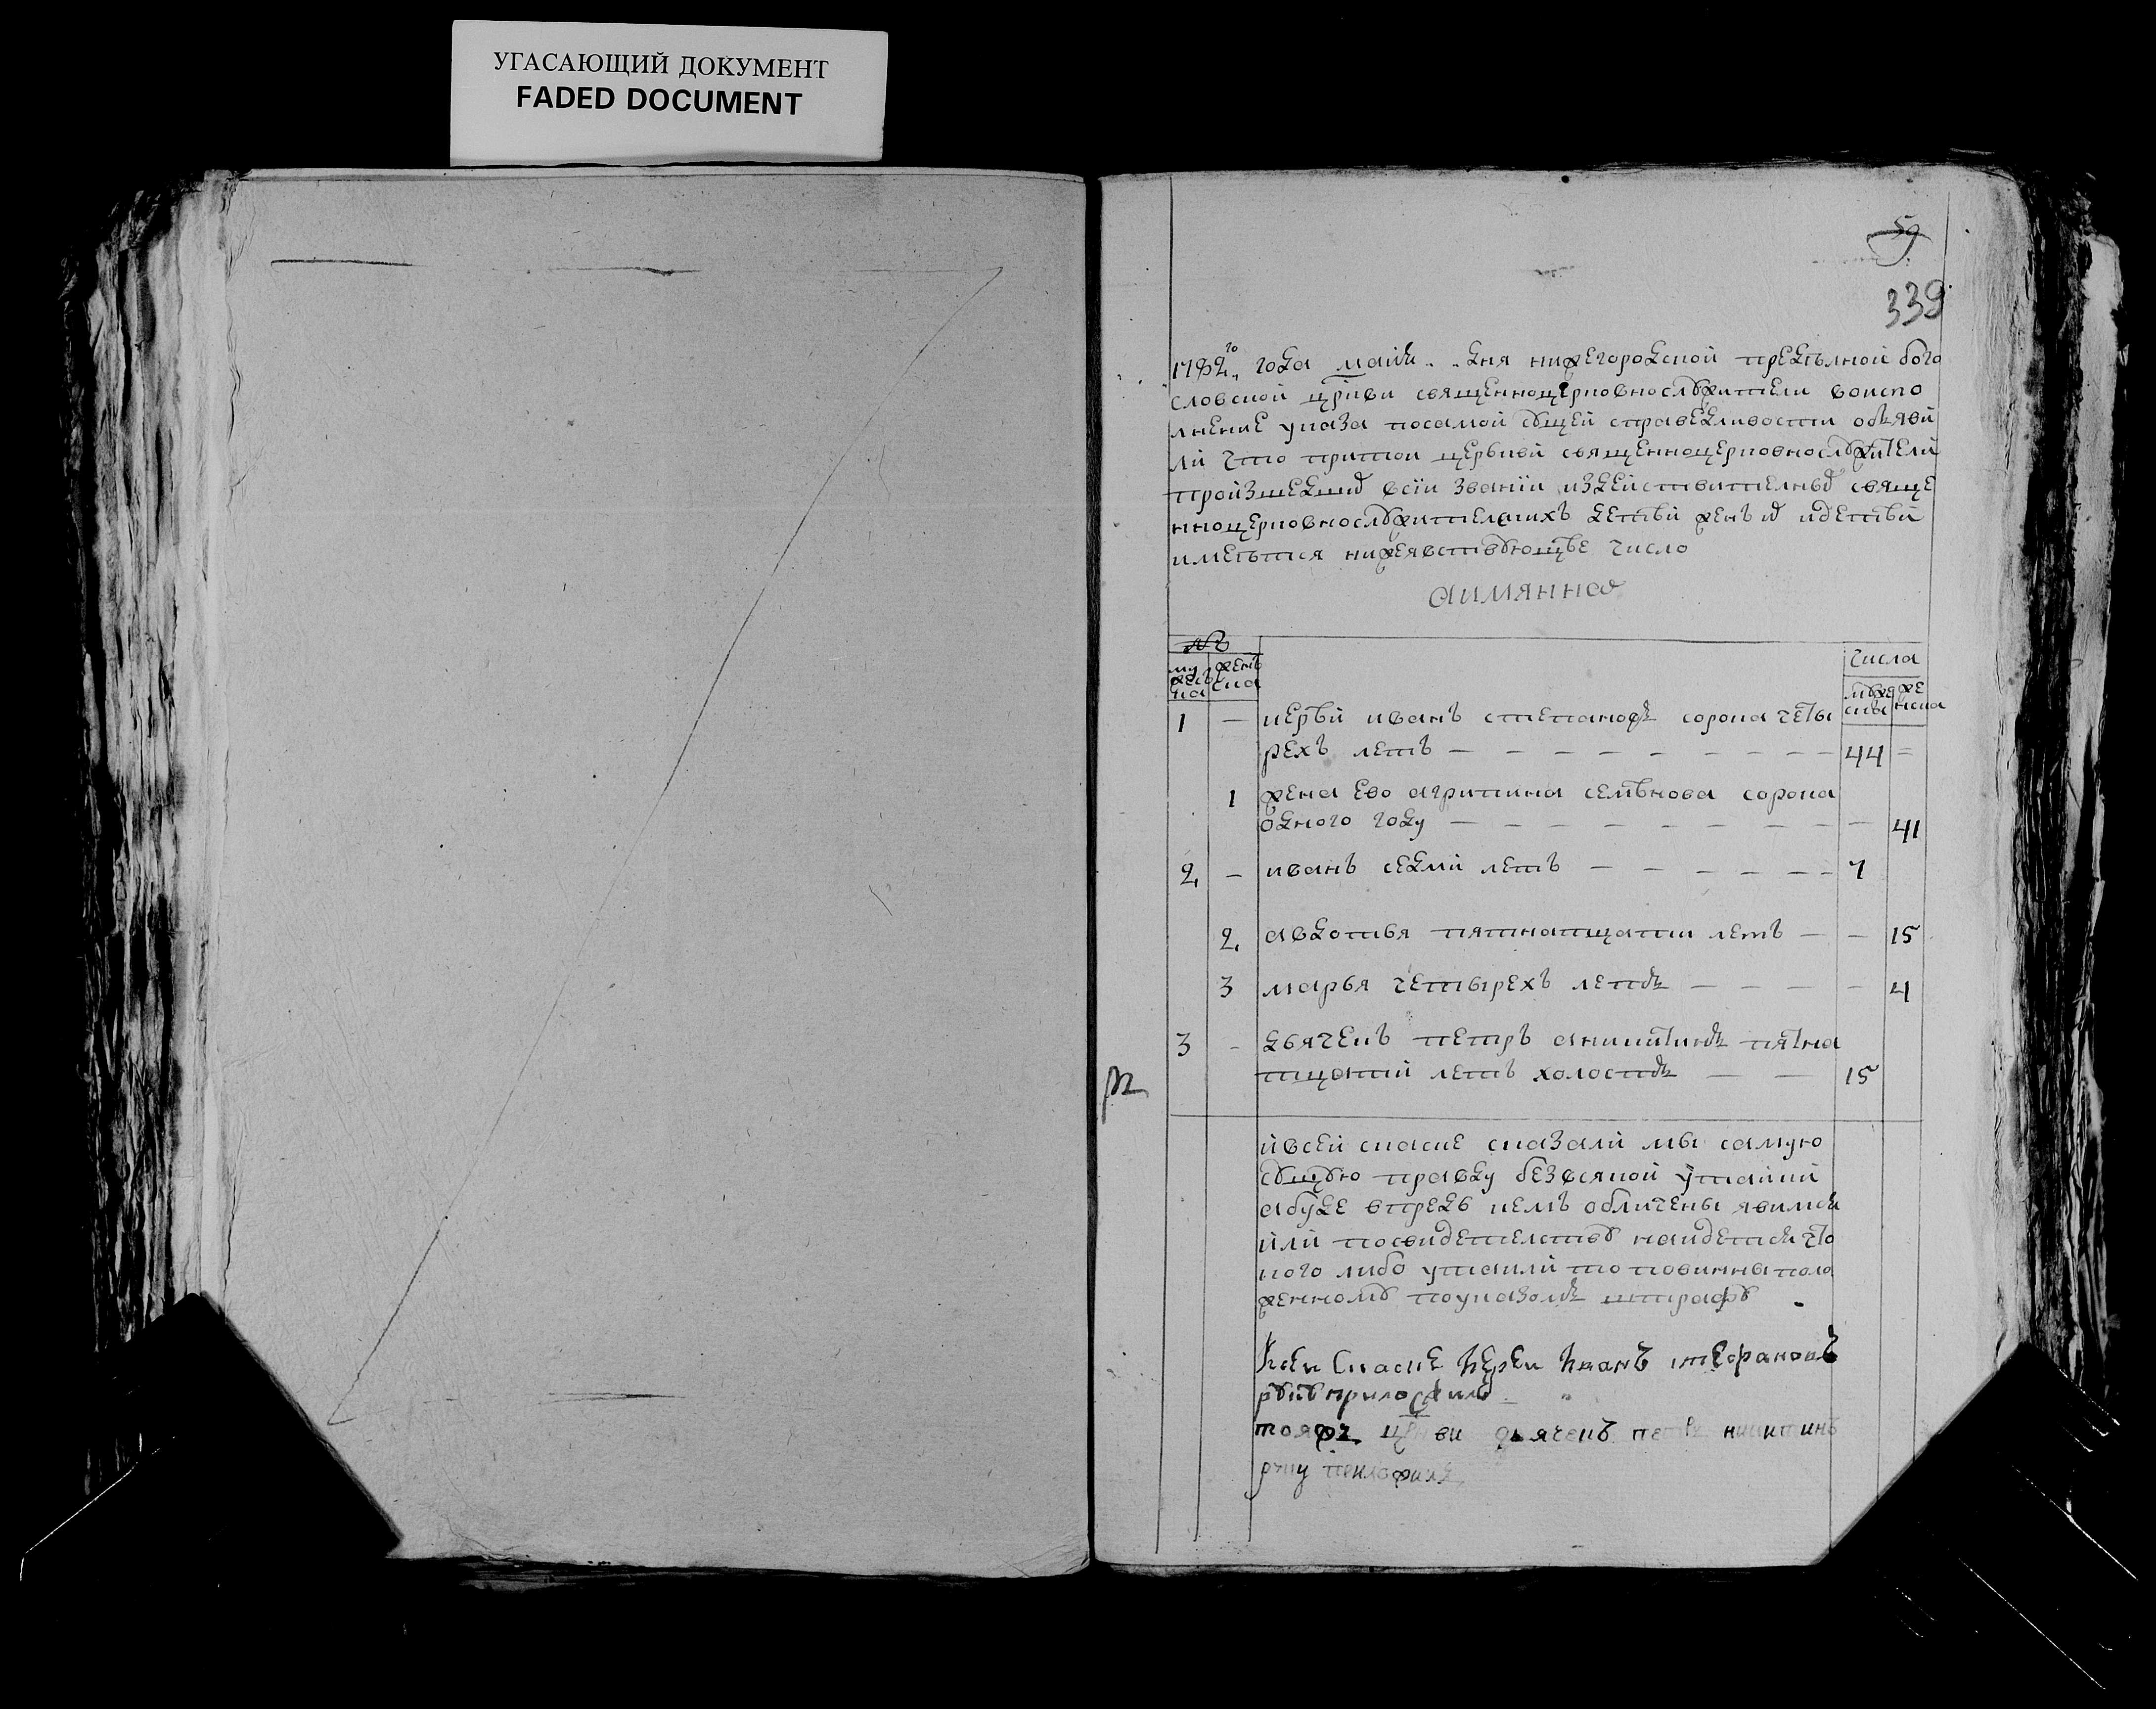 УГАСАЮЩИЙ ДОКУМЕНТ
FADED DOCUMENT
59
339
1782го года майя дня нижегородской пределной бого
словской цркви священноцерковнослужители воиспо
лнение указа посамой сущей справедливости обьяви
ли что притои церкви священноцерковнослужители
произшедших всiи званiи издействителных свяще
нноцерковнослужителскихъ детей жен их идетей
имеется нижеявствующее число
аимянно
№
му жеска
женъ ска
числа
мужеска
женска
1 — иерей иванъ степановъ сорока четы
рехъ летъ — 44 =
1 жена ево агрипина семенова сорока
одного году — 41
2, — иванъ седми летъ — 7
2, авдотья пятнатцати летъ — — 15
3 марья четырехъ летъ — — 4
3 - дьячекъ петръ аникитинъ пятна
тцатий летъ холостъ — 15
ивсей скаске сказали мы самую
сущую правду безвсякой утайки
абуде впредь кемъ обличены явимся
или посвидетелству найдется что
кого либо утаили то повинны поло
женному поуказомъ штрафу
Ксеи Скаске Иереи Иванъ стефановъ
руку приложилъ
тояж цркви дьячекъ петръ никитинъ
руку приложилъ